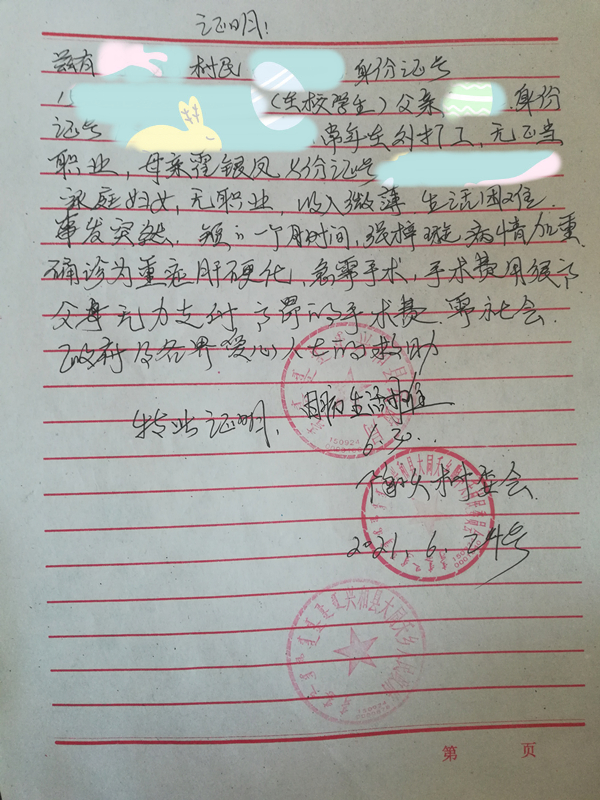 证明:
兹有 村民 身份证号
(在校学生)父亲 身份
证号 常年在外打工,无正当
职业,母亲霍银凤 身份证号
家庭妇女,无职业,收入微薄 生活困难.
事发突然,短短一个月时间,张梓璇病情加重
确诊为重症肝硬化,急需手术,手术费用很高
父母无力支付高昂的手术费.需社会
政府及各界爱心人士的救助.
特此证明. 因病生活困难
6.30.
村委会.
2021.6.24号
兴和县大同夭乡
150924
第 页